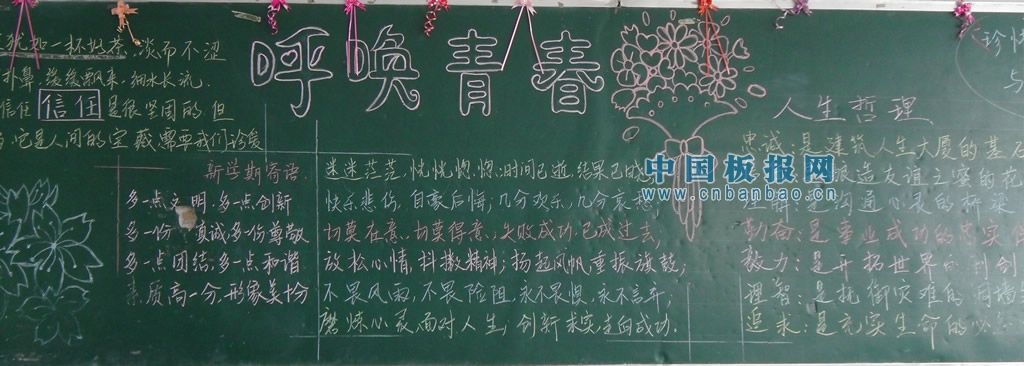 犹如一杯好茶,淡而不涩
扑鼻,缓缓飘来,细水长流.
信任 信任 是很坚固的,但
它是人间的宝藏,需要我们珍爱
呼唤青春
新学期寄语
多一点文明,多一点创新
多一份真诚,多一份尊敬
多一点团结,多一点和谐
素质高一分,形象美十分
迷迷茫茫,恍恍惚惚;时间已逝,结果已成
快乐悲伤,自豪后悔;几分欢乐,几分哀愁
切莫在意,切莫得意,失败成功,已成过去,
放松心情,抖擞精神;扬起风帆,重振旗鼓;
不畏风雨,不畏险阻,永不畏惧,永不言弃,
磨炼心灵,面对人生,创新求实,走向成功.
人生哲理
忠诚:是建筑人生大厦的基石
是酿造友谊之蜜的花
理解:是沟通心灵的桥梁
勤奋:是事业成功的
毅力:是开拓世界的
理智:是抵御灾难的
追求:是充实生命的
珍惜
与
中国板报网
www.cnbanbao.cn